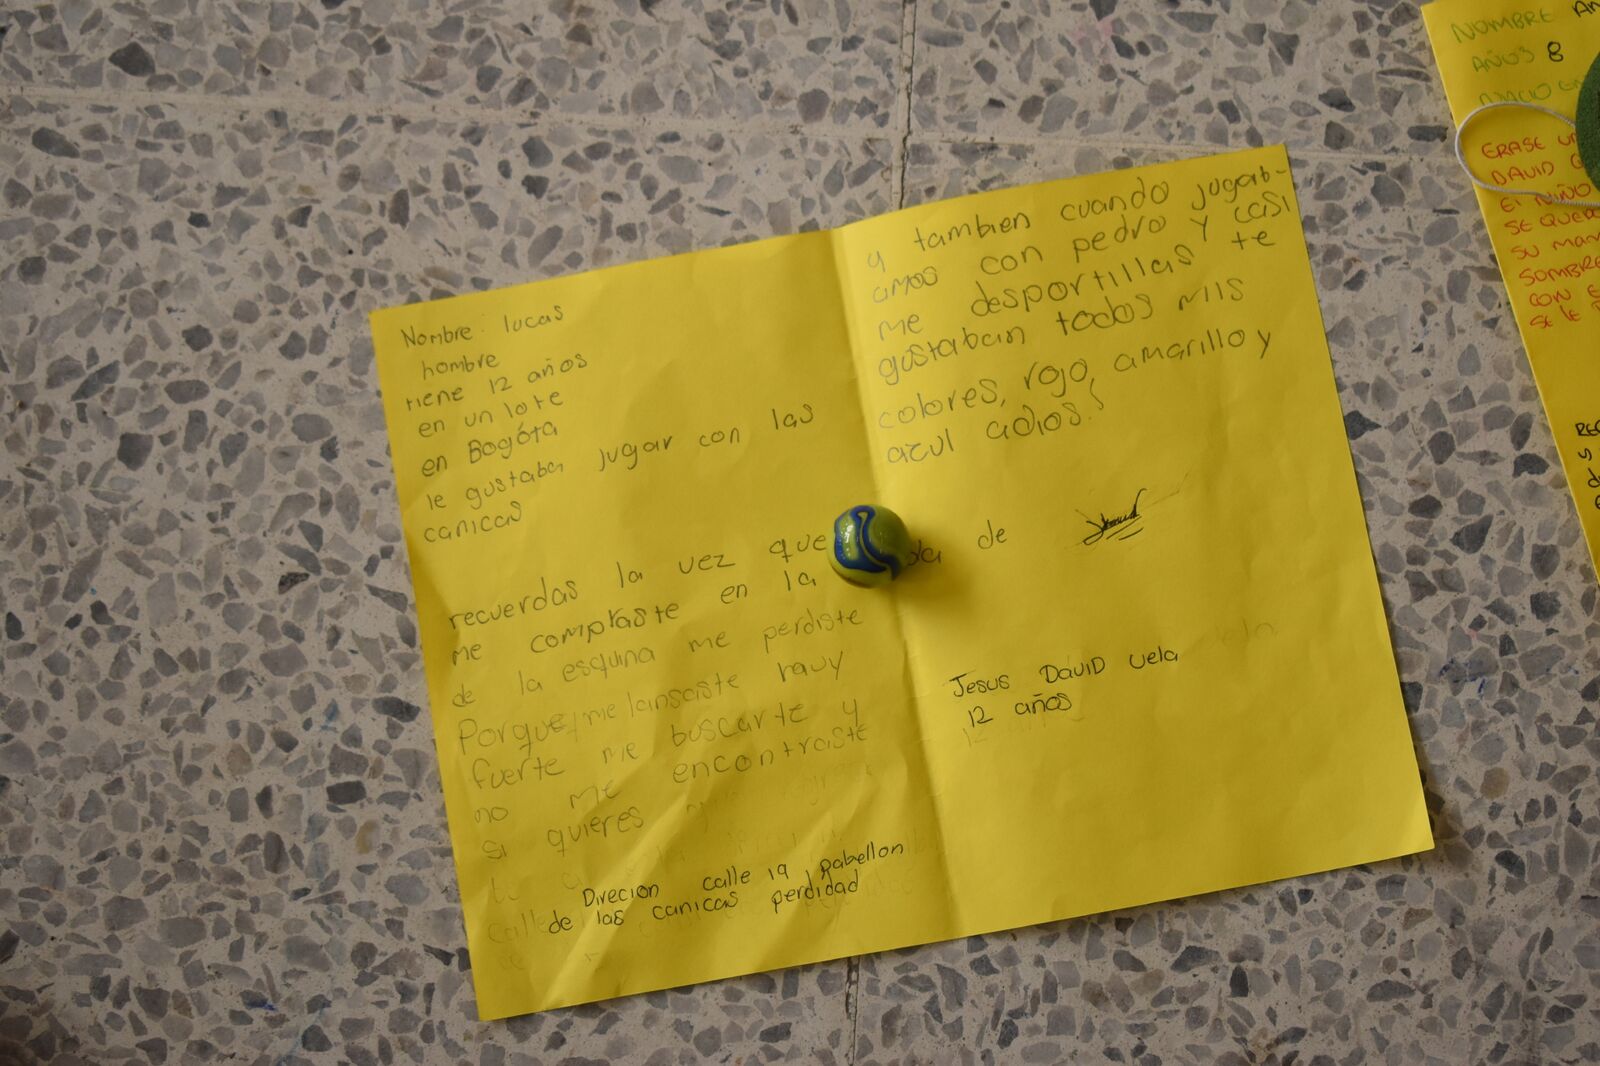 Nombre: lucas
hombre
tiene 12 años
en un lote
en Bogóta
le gustaba jugar con las
canicas
recuerdas la vez que
me compraste en la da de
de la esquina me perdiste
Porque me lansaste muy
fuerte me buscarte y
no me encontraste
si quieres
Direcion calle 19 Pabellon
de las canicas perdidad
y tambien cuando jugab-
amos con pedro y casi
me desportillas te
gustaban todos mis
colores, rojo, amarillo y
azul adios.
Jesus DAVID vela
12 años
NOMBRE AN
AÑOS 8
ERASE UN
DAVID
El NIÑO
SE QUED
SU MAM
SOMBRE
CON E
SE LE
REC
y
d
E